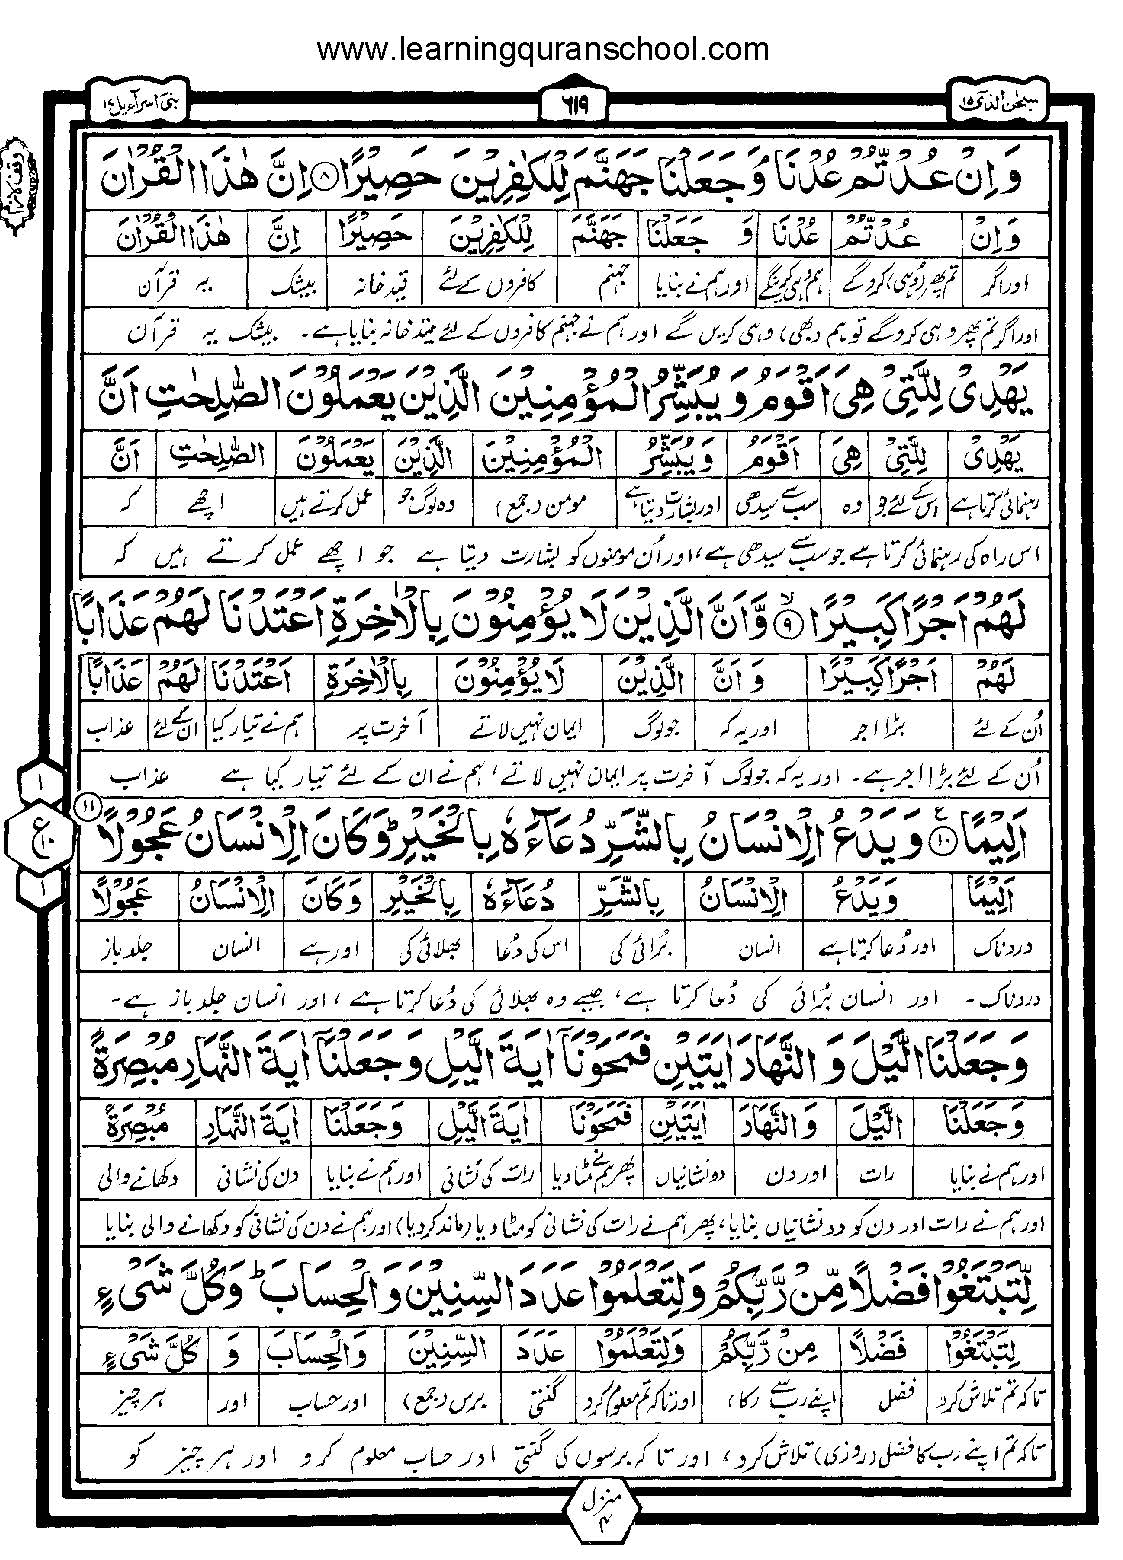 www.learningquranschool.com
سبحن الذی ۱۵
۶۱۹
بنی اسرآءیل ۱۷
وَاِنْ عُدْتُّمْ عُدْنَا وَجَعَلْنَا جَهَنَّمَ لِلْكٰفِرِیْنَ حَصِیْرًا ۸ اِنَّ هٰذَا الْقُرْاٰنَ
وَاِنْ عُدْتُّمْ عُدْنَا وَ جَعَلْنَا جَهَنَّمَ لِلْكٰفِرِیْنَ حَصِیْرًا اِنَّ هٰذَا الْقُرْاٰنَ
اور اگر تم پھر (وہی) کروگے ہم وہی کرینگے اور ہم نے بنایا جہنم کافروں کے لئے قید خانہ بیشک یہ قرآن
اور اگر تم پھر وہی کروگے تو ہم (بھی) وہی کریں گے اور ہم نے جہنم کافروں کے لئے قید خانہ بنایا ہے۔ بیشک یہ قرآن
یَهْدِیْ لِلَّتِیْ هِیَ اَقْوَمُ وَیُبَشِّرُ الْمُؤْمِنِیْنَ الَّذِیْنَ یَعْمَلُوْنَ الصّٰلِحٰتِ اَنَّ
یَهْدِیْ لِلَّتِیْ هِیَ اَقْوَمُ وَیُبَشِّرُ الْمُؤْمِنِیْنَ الَّذِیْنَ یَعْمَلُوْنَ الصّٰلِحٰتِ اَنَّ
رہنمائی کرتا ہے اس کے لئے جو وہ سب سے سیدھی اور بشارت دیتا ہے مومن (جمع) وہ لوگ جو عمل کرتے ہیں اچھے کہ
اس راہ کی رہنمائی کرتا ہے جو سب سے سیدھی ہے، اور اُن مومنوں کو بشارت دیتا ہے جو اچھے عمل کرتے ہیں کہ
لَهُمْ اَجْرًا كَبِیْرًا ۹ وَّاَنَّ الَّذِیْنَ لَا یُؤْمِنُوْنَ بِالْاٰخِرَةِ اَعْتَدْنَا لَهُمْ عَذَابًا
لَهُمْ اَجْرًا كَبِیْرًا وَ اَنَّ الَّذِیْنَ لَا یُؤْمِنُوْنَ بِالْاٰخِرَةِ اَعْتَدْنَا لَهُمْ عَذَابًا
اُن کے لئے بڑا اجر اور یہ کہ جو لوگ ایمان نہیں لاتے آخرت پر ہم نے تیار کیا ان کے لئے عذاب
اُن کے لئے بڑا اجر ہے۔ اور یہ کہ جو لوگ آخرت پر ایمان نہیں لاتے، ہم نے ان کے لئے تیار کیا ہے عذاب
اَلِیْمًا ۱۰ وَیَدْعُ الْاِنْسَانُ بِالشَّرِّ دُعَآءَهٗ بِالْخَیْرِ ؕ وَكَانَ الْاِنْسَانُ عَجُوْلًا ۱۱
اَلِیْمًا وَیَدْعُ الْاِنْسَانُ بِالشَّرِّ دُعَآءَهٗ بِالْخَیْرِ وَكَانَ الْاِنْسَانُ عَجُوْلًا
دردناک اور دُعا کرتا ہے انسان بُرائی کی اس کی دُعا بھلائی کی اور ہے انسان جلد باز
دردناک۔ اور انسان بُرائی کی دُعا کرتا ہے، جیسے وہ بھلائی کی دُعا کرتا ہے، اور انسان جلد باز ہے۔
وَجَعَلْنَا الَّیْلَ وَالنَّهَارَ اٰیَتَیْنِ فَمَحَوْنَاۤ اٰیَةَ الَّیْلِ وَجَعَلْنَاۤ اٰیَةَ النَّهَارِ مُبْصِرَةً
وَجَعَلْنَا الَّیْلَ وَالنَّهَارَ اٰیَتَیْنِ فَمَحَوْنَا اٰیَةَ الَّیْلِ وَجَعَلْنَا اٰیَةَ النَّهَارِ مُبْصِرَةً
اور ہم نے بنایا رات اور دن دو نشانیاں پھر ہم نے مٹا دیا رات کی نشانی اور ہم نے بنایا دن کی نشانی دکھانے والی
اور ہم نے رات اور دن کو دو نشانیاں بنایا، پھر ہم نے رات کی نشانی کو مٹا دیا (ماند کر دیا) اور ہم نے دن کی نشانی کو دکھانے والی بنایا
لِّتَبْتَغُوْا فَضْلًا مِّنْ رَّبِّكُمْ وَلِتَعْلَمُوْا عَدَدَ السِّنِیْنَ وَالْحِسَابَ ؕ وَكُلَّ شَیْءٍ
لِتَبْتَغُوْا فَضْلًا مِنْ رَّبِّكُمْ وَلِتَعْلَمُوْا عَدَدَ السِّنِیْنَ وَالْحِسَابَ وَ كُلَّ شَیْءٍ
تاکہ تم تلاش کرو فضل اپنے رب سے (کا) اور تاکہ تم معلوم کرو گنتی برس (جمع) اور حساب اور ہر چیز
تاکہ تم اپنے رب کا فضل (روزی) تلاش کرو، اور تاکہ برسوں کی گنتی اور حساب معلوم کرو اور ہر چیز کو
منزل ۴